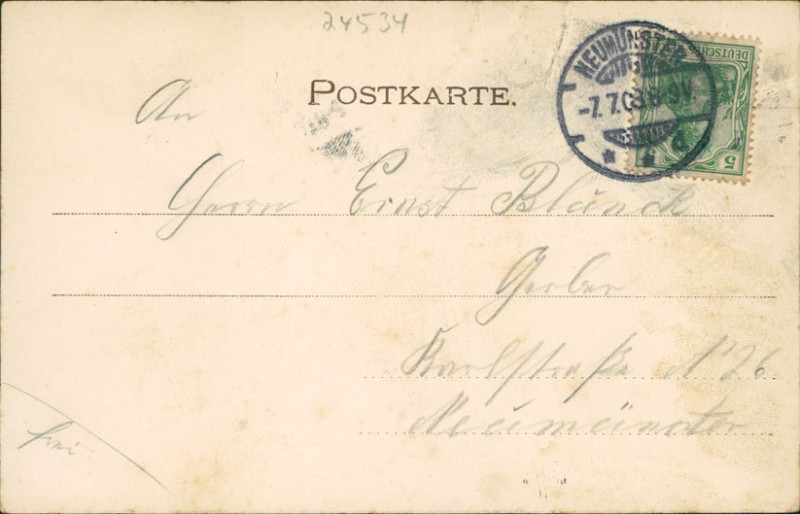 24534
POSTKARTE.
NEUMÜNSTER
-7.7.03. 8-9V.
DEUTSCHES
5
An
Herrn Ernst Blunck
Gerber
Karlstraße N 26
Neumünster
frei